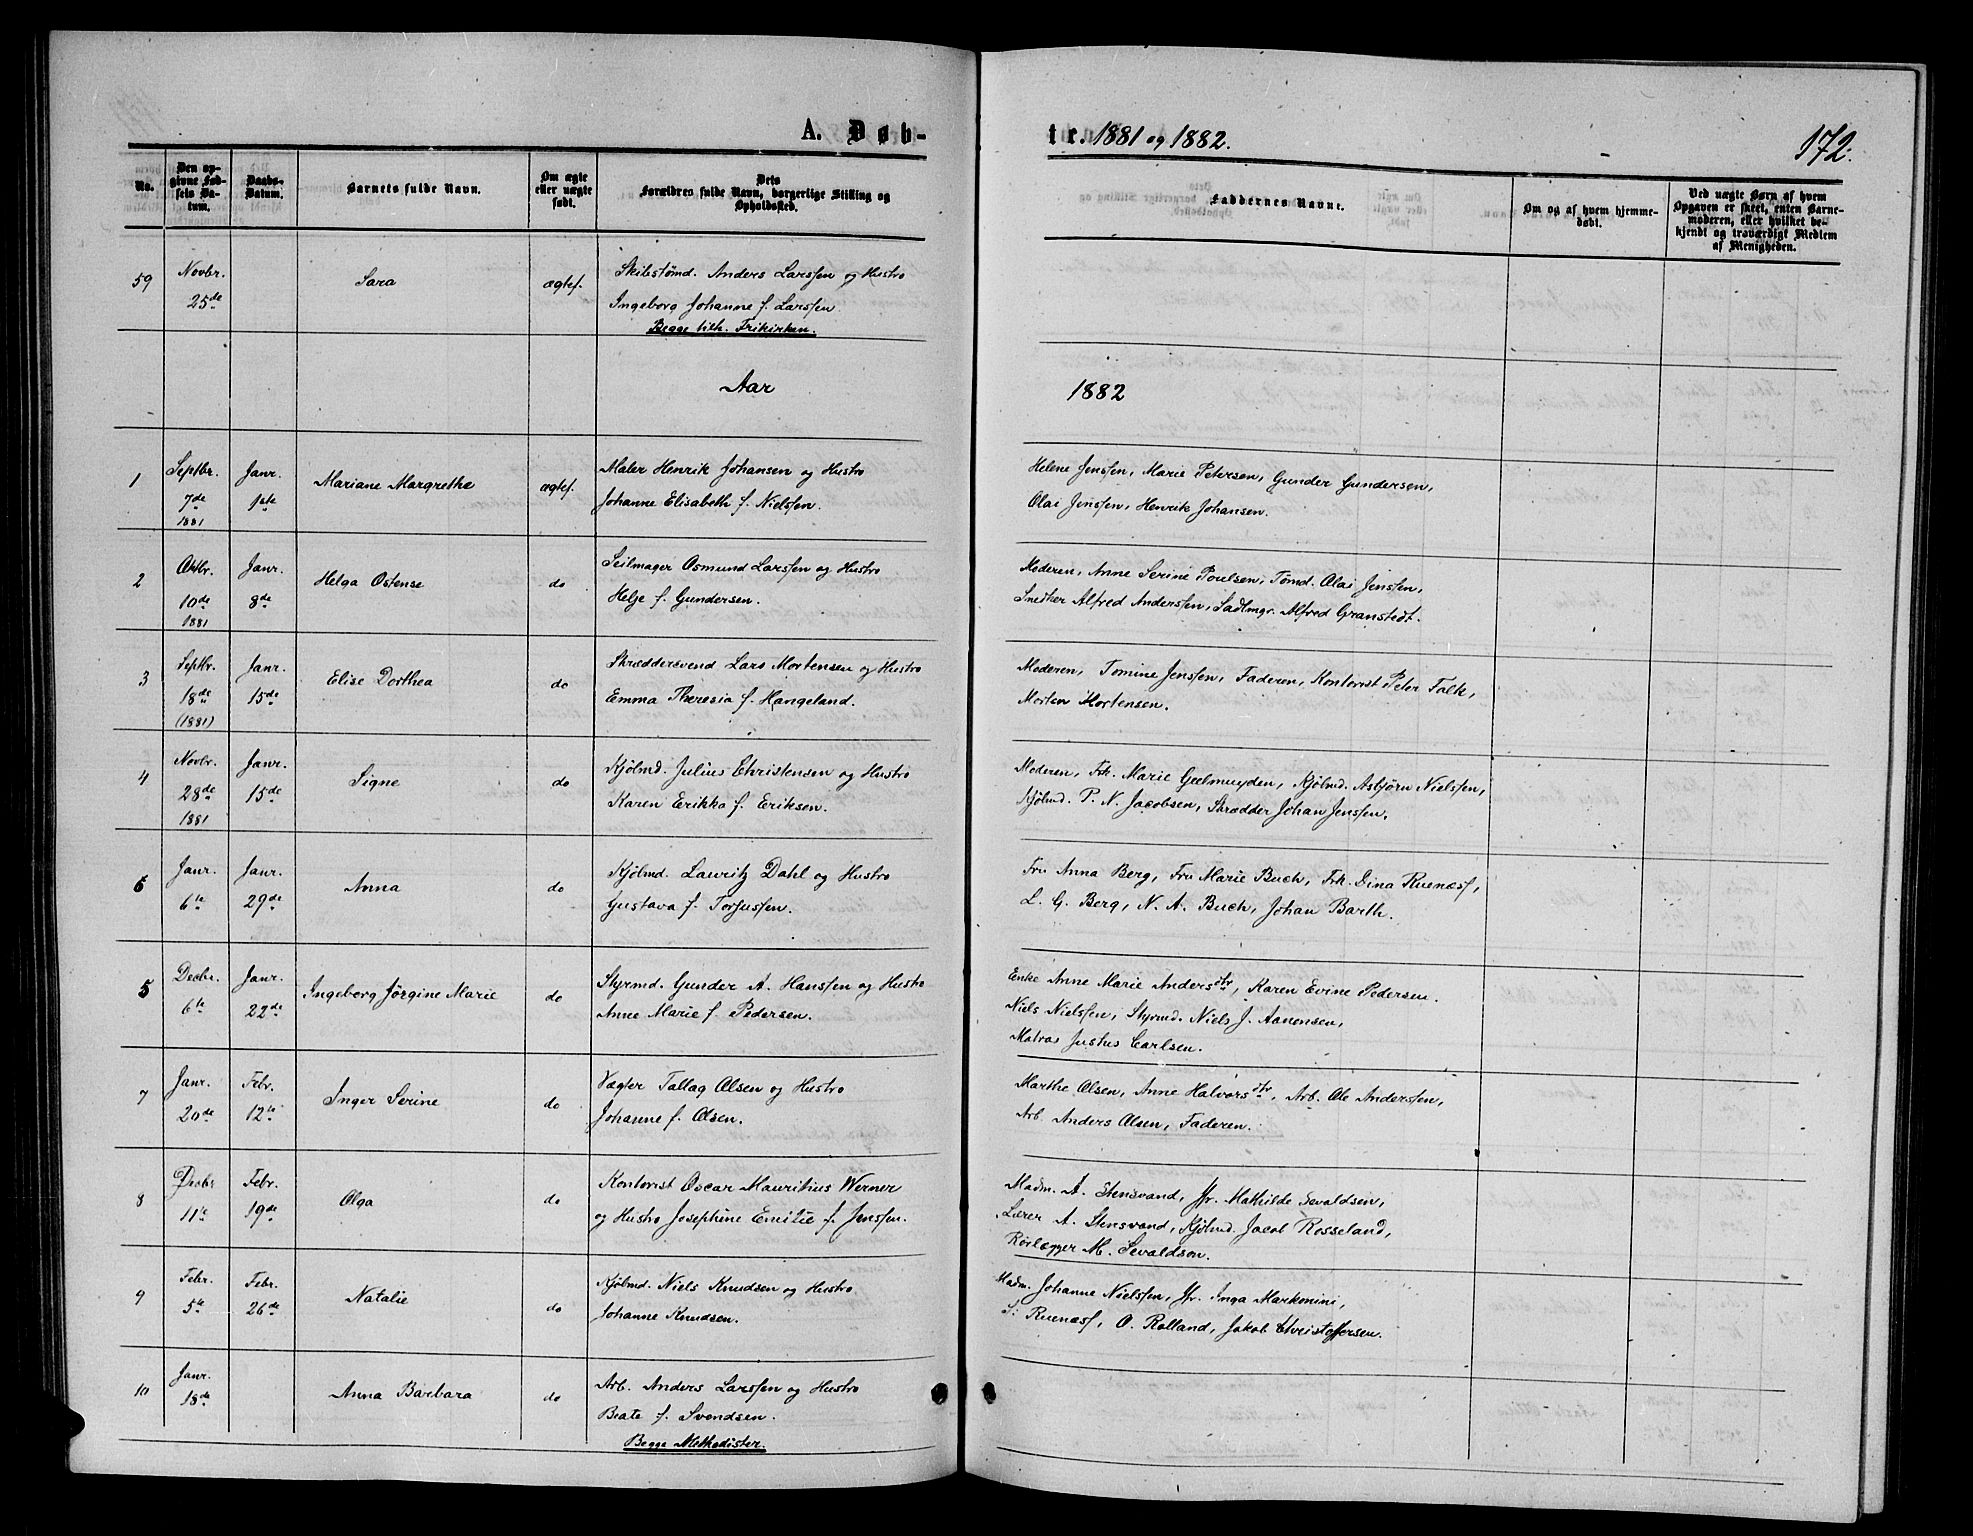 A. Døb-
tr. 1881 og 1882.
172.
No.
Den op-
givne Fød-
sels Da-
tum.
Daabs-
Datum.
Barnets fulde Navn.
Om ægte
eller uægte
født.
Dets
Forældres fulde Navn, borgerlige Stilling og
Opholdssted.
Faddernes Navne.
Om og af hvem hjemme-
døbt.
Ved uægte Børn af hvem
Opgaven er skeet, enten Barne-
moderen, eller hvilket be-
kjendt og troværdigt Medlem
af Menigheden.
59
Novbr.
25de
Sara
ægtef.
Skibstømd. Anders Larssen og Hustro
Ingeborg Johanne f. Larssen
Begge tilh. Frikirken.
Aar
1882
1
Septbr.
7de
1881
Janr.
1ste
Mariane Margrethe
ægtef.
Maler Henrik Johansen og Hustro
Johanne Elisabeth f. Nielssen.
Helene Jenssen, Marie Petersen, Gunder Gundersen,
Olai Jenssen, Henrik Johansen.
2
Oktbr.
10de
1881
Janr.
8de
Helga Ostense
do
Seilmager Osmund Larssen og Hustro
Helje f. Gundersen.
Moderen, Anne Serine Poulsen, Tømd. Olai Jenssen,
Snedker Alfred Anderssen, Sadlmgr. Alfred Granstedt.
3
Septbr.
18de
(1881)
Janr.
15de
Elise Dorthea
do
Skræddersvend Lars Mortensen og Hustro
Emma Theresia f. Hangeland.
Moderen, Tomine Jenssen, Faderen, Kontorist Peter Falk,
Morten Mortensen.
4
Novbr.
28de
1881
Janr.
15de
Signe
do
Kjølmd. Julius Christensen og Hustro
Karen Erikka f. Eriksen.
Moderen, Frk. Marie Geelmuyden, Kjølmd. Asbjørn Nielssen,
Kjølmd. P. N. Jacobsen, Skrædder Johan Jenssen.
6
Janr.
6te
Janr.
29de
Anna
do
Kjølmd. Lauritz Dahl og Hustro
Gustava f. Torjussen.
Fru Anna Berg, Fru Marie Buch, Frk. Dina Ruenæsf,
L. G. Berg, N. A. Buch, Johan Barth.
5
Decbr.
6te
Janr.
22de
Ingeborg Jørgine Marie
do
Styrmd. Gunder A. Hanssen og Hustro
Anne Marie f. Pedersen.
Enke Anne Marie Andersdtr, Karen Evine Pedersen.
Niels Nielssen, Styrmd. Niels J. Aanensen,
Matros Justus Carlsen.
7
Janr.
20de
Febr.
12te
Inger Serine
do
Vægter Tallag Olsen og Hustro
Johanne f. Olsen.
Marthe Olsen, Anne Halvorsdtr, Arb. Ole Anderssen,
Arb. Anders Olsen, Faderen.
8
Decbr
11te
Febr.
19de
Olga
do
Kontorist Oscar Mauritius Werner
og Hustro Josephine Emilie f. Jenssen.
Madm. A. Stensvand, Jfr. Mathilde Sevaldsen,
Lærer A. Stensvand, Kjølmd. Jacob Rosseland,
Rørlægger M. Sevaldsen.
9
Febr.
5te
Febr.
26de
Natalie
do
Kjølmd. Niels Knudsen og Hustro
Johanne Knudsen.
Madm. Johanne Nielssen, Jfr. Inga Markonini,
S. Ruenæsf, O. Rolland, Jakob Christoffersen.
10
Janr.
18de
Anna Barbara
do
Arb. Anders Larssen og Hustro
Beate f. Svendsen.
Begge Methodister.